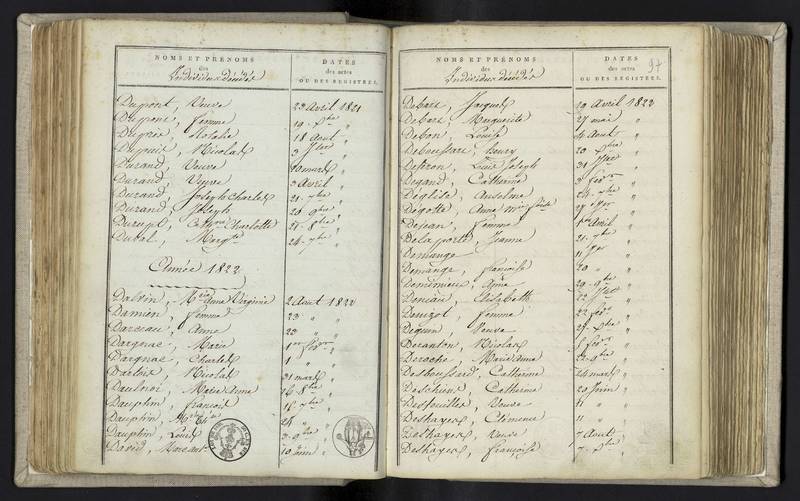 NOMS ET PRÉNOMS
des
Individus décédés
DATES
des actes
OU DES REGISTRES.
Dupont, Veuve 23 Avril 1821
Dupont, femme 19 Xbre "
Dupuis, Rosalie 18 Aout "
Dupuis, Nicolas 3 "
Durand, Veuve 10 mars "
Durand, Veuve 3 Avril "
Durand, Joseph Charles 21 7bre "
Durand, Joseph 20 9bre "
Dutrupt, Cathne Charlotte 25 8bre "
Duval, Margte 24 7bre "
Année 1822
Dabrin, Marie Anne Virginie 2 Aout 1822
Damien, femme 23 "
Darceau, Anne 22 " "
Dargnac, Marie 1er fevr "
Dargnac, Charles 1 "
Darloix, Nicolas 31 mars "
Daulnoi, Marie Anne 16 8bre "
Dauphin, françois 15 7bre "
Dauphin, 24 " "
Dauphin, Louis 3 9bre "
David, 10 Juin "
NOMS ET PRÉNOMS
des
Individus décédés
DATES
des actes
OU DES REGISTRES.
97
Debart, Jacques 19 Avril 1822
Debart, Marguerite 27 mai "
Debon, Louis 4 Aout "
Deboussart, henry 20 Xbre "
Louis Joseph 31 "
Degand, Catherine 3 fevr "
Deglise, Anselme 24 "
Degotte, Anne "
Dejean, femme 1er Avril "
Delaporte, Jeanne 21 7bre "
Demange 11 "
Demange, françoise 20 " "
Demenieux, Anne 29 9bre "
Elisabeth 22 "
femme 22 fevr "
Dequin, Veuve 29 Xbre "
Deranton, Nicolas fevr "
Deroche, Marie Anne 9bre "
Desboussard, Catherine 24 mars "
Catherine 20 Juin "
Desfeuilles, Veuve 11 "
Deshayes, Clémence 11 "
Deshayes, Veuve 7 Aout "
Deshayes, françoise 7 "